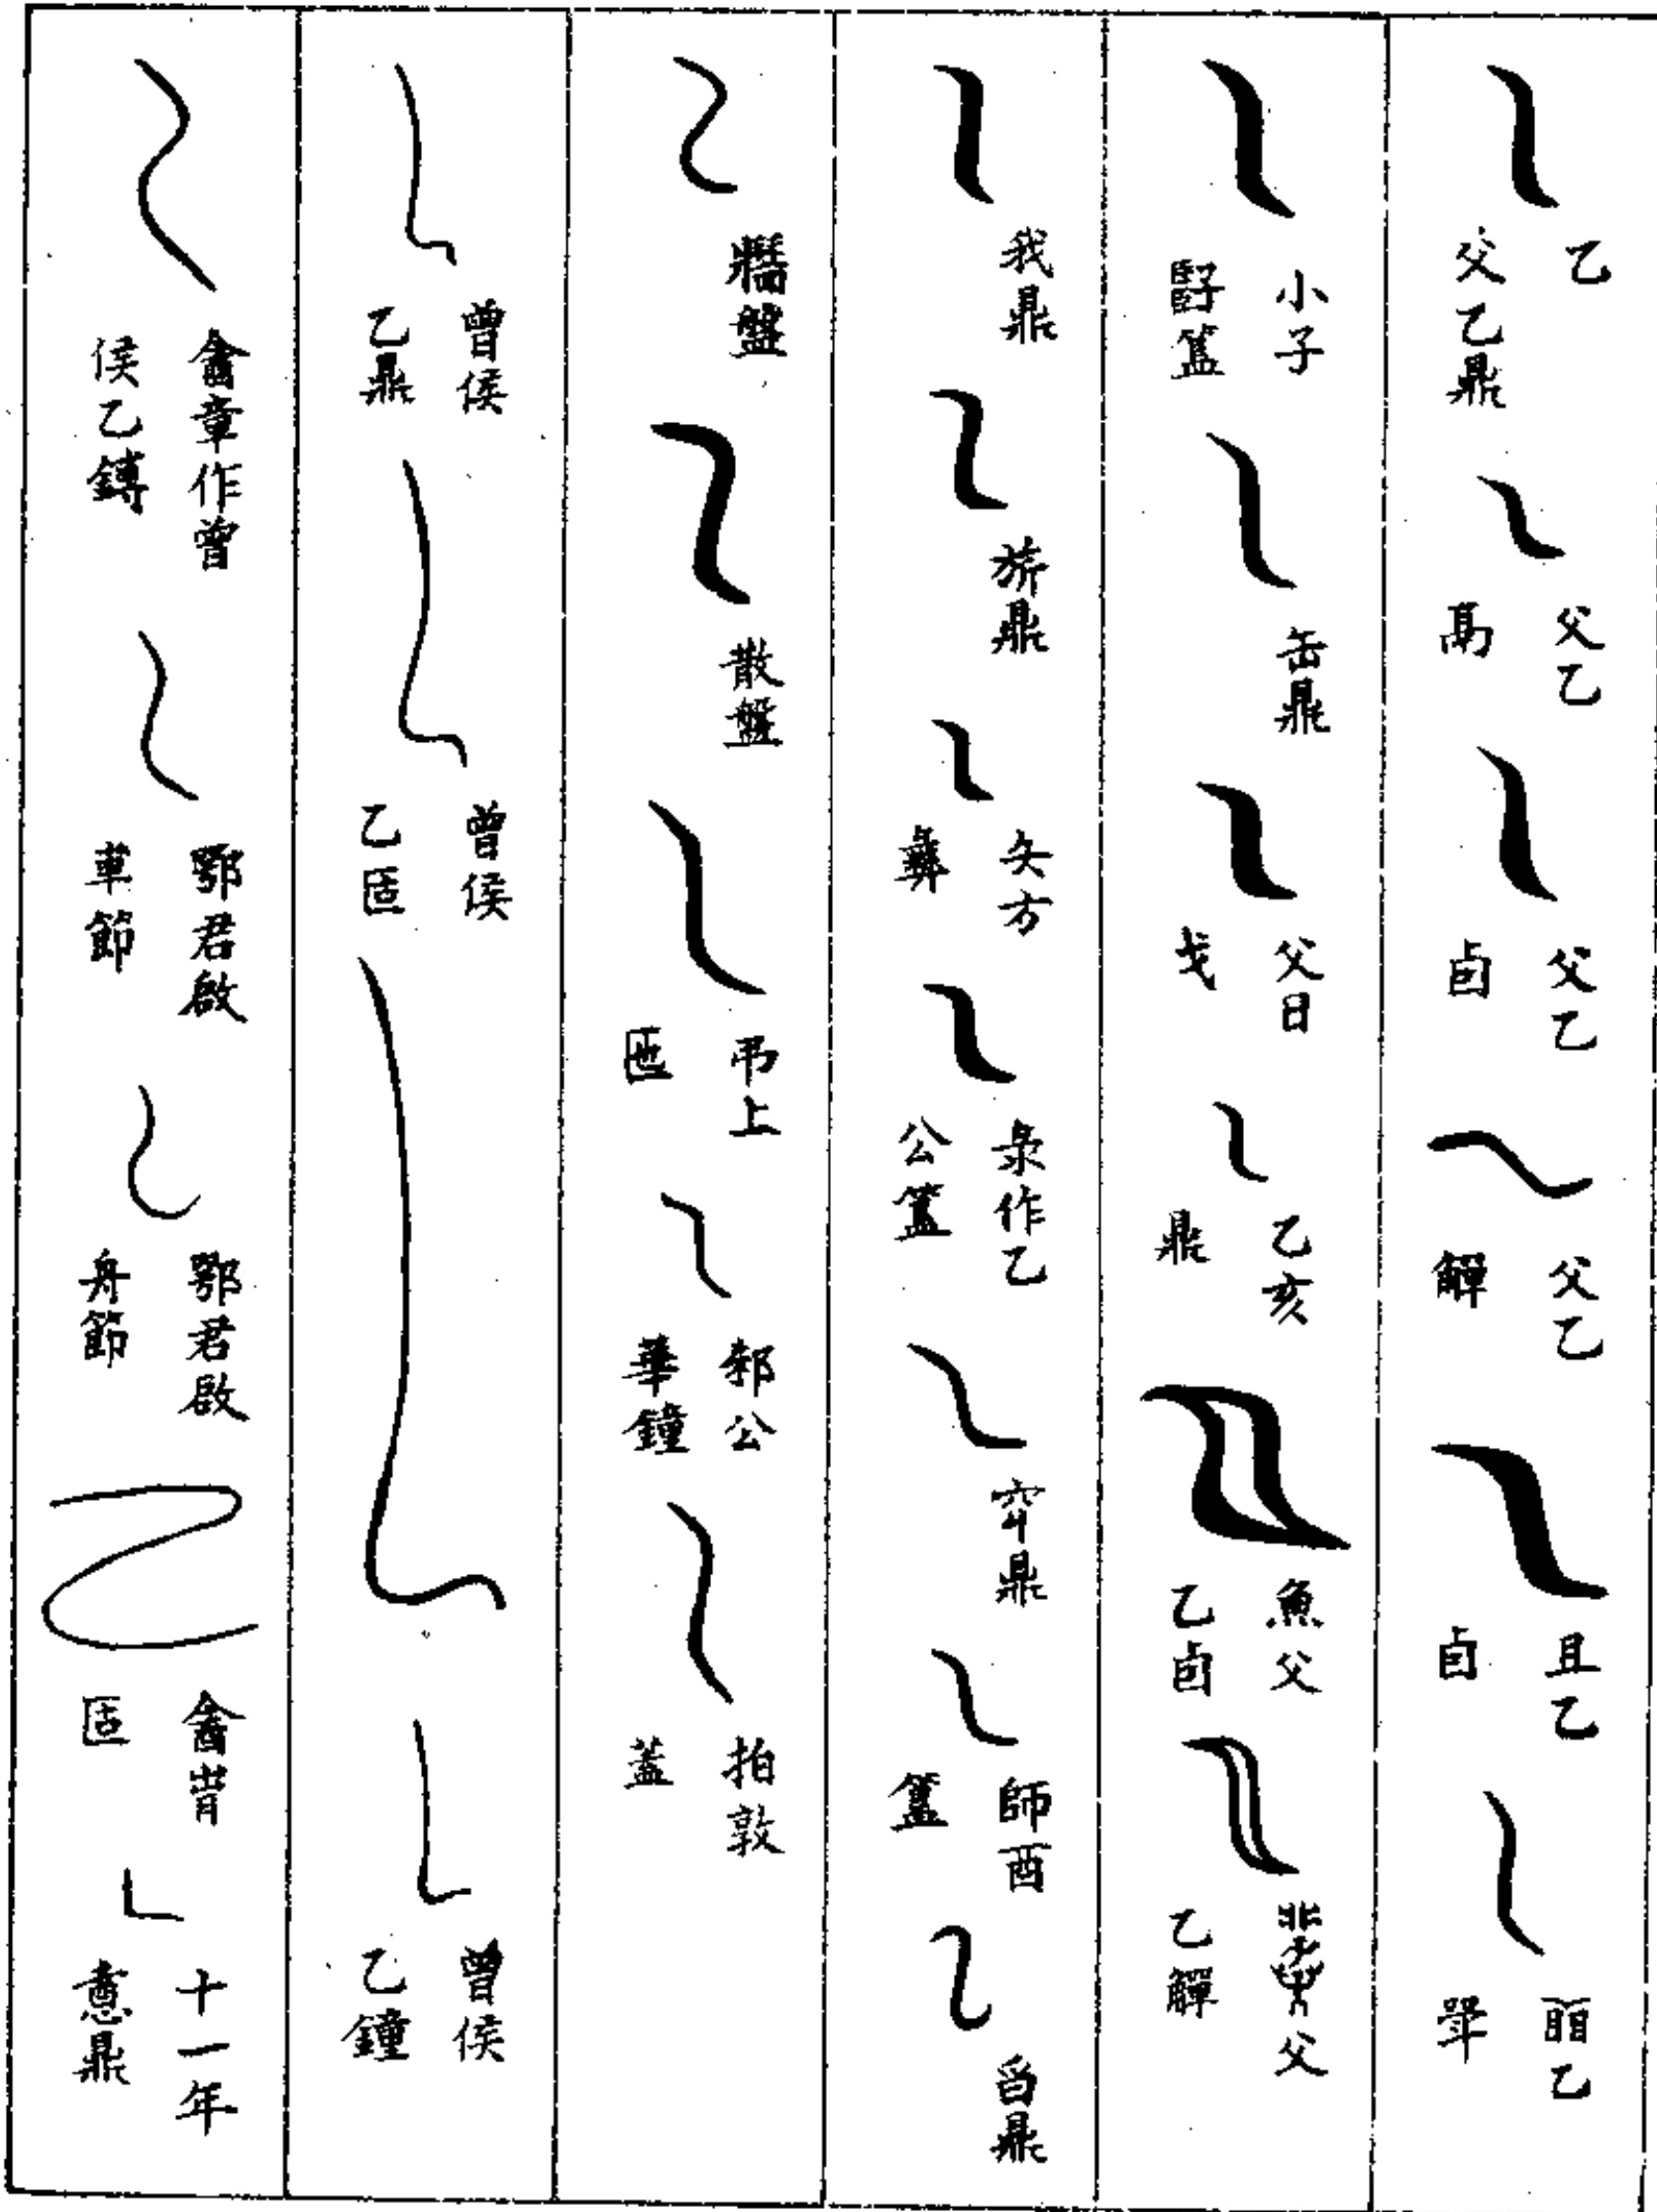 乙
父乙鼎
父乙
鬲
父乙
卣
父乙
觶
且乙
卣
乙
斝
小子
簋
缶鼎
父日
戈
乙亥
鼎
魚父
乙卣
父
乙觶
我鼎
旂鼎
矢方
彝
彔作乙
公簋
鼎
師酉
簋
曶鼎
牆盤
散盤
弔上
匜
邾公
華鐘
拍敦
蓋
曾侯
乙鼎
曾侯
乙匜
曾侯
乙鐘
酓章作曾
侯乙鎛
鄂君啟
車節
鄂君啟
舟節
酓
十一年
鼎